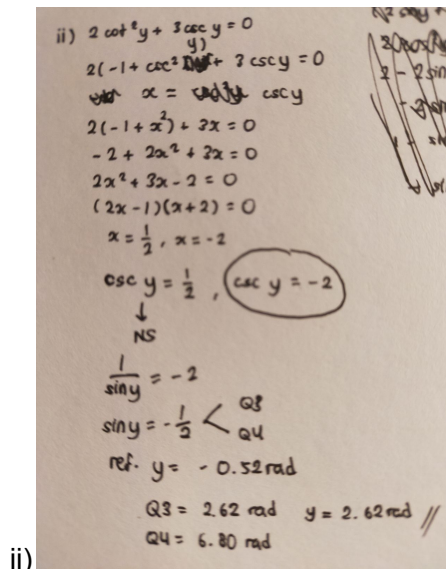 ii) 2 cot²y + 3 csc y = 0
2(-1 + csc² y) + 3 csc y = 0
x = csc y
2(-1 + x²) + 3x = 0
-2 + 2x² + 3x = 0
2x² + 3x - 2 = 0
(2x-1)(x+2) = 0
x = 1/2, x = -2
csc y = 1/2, csc y = -2
↓
NS
1/sin y = -2
sin y = -1/2 < Q3
Q4
ref. y = -0.52 rad
Q3 = 2.62 rad y = 2.62 rad //
Q4 = 6.80 rad
ii)